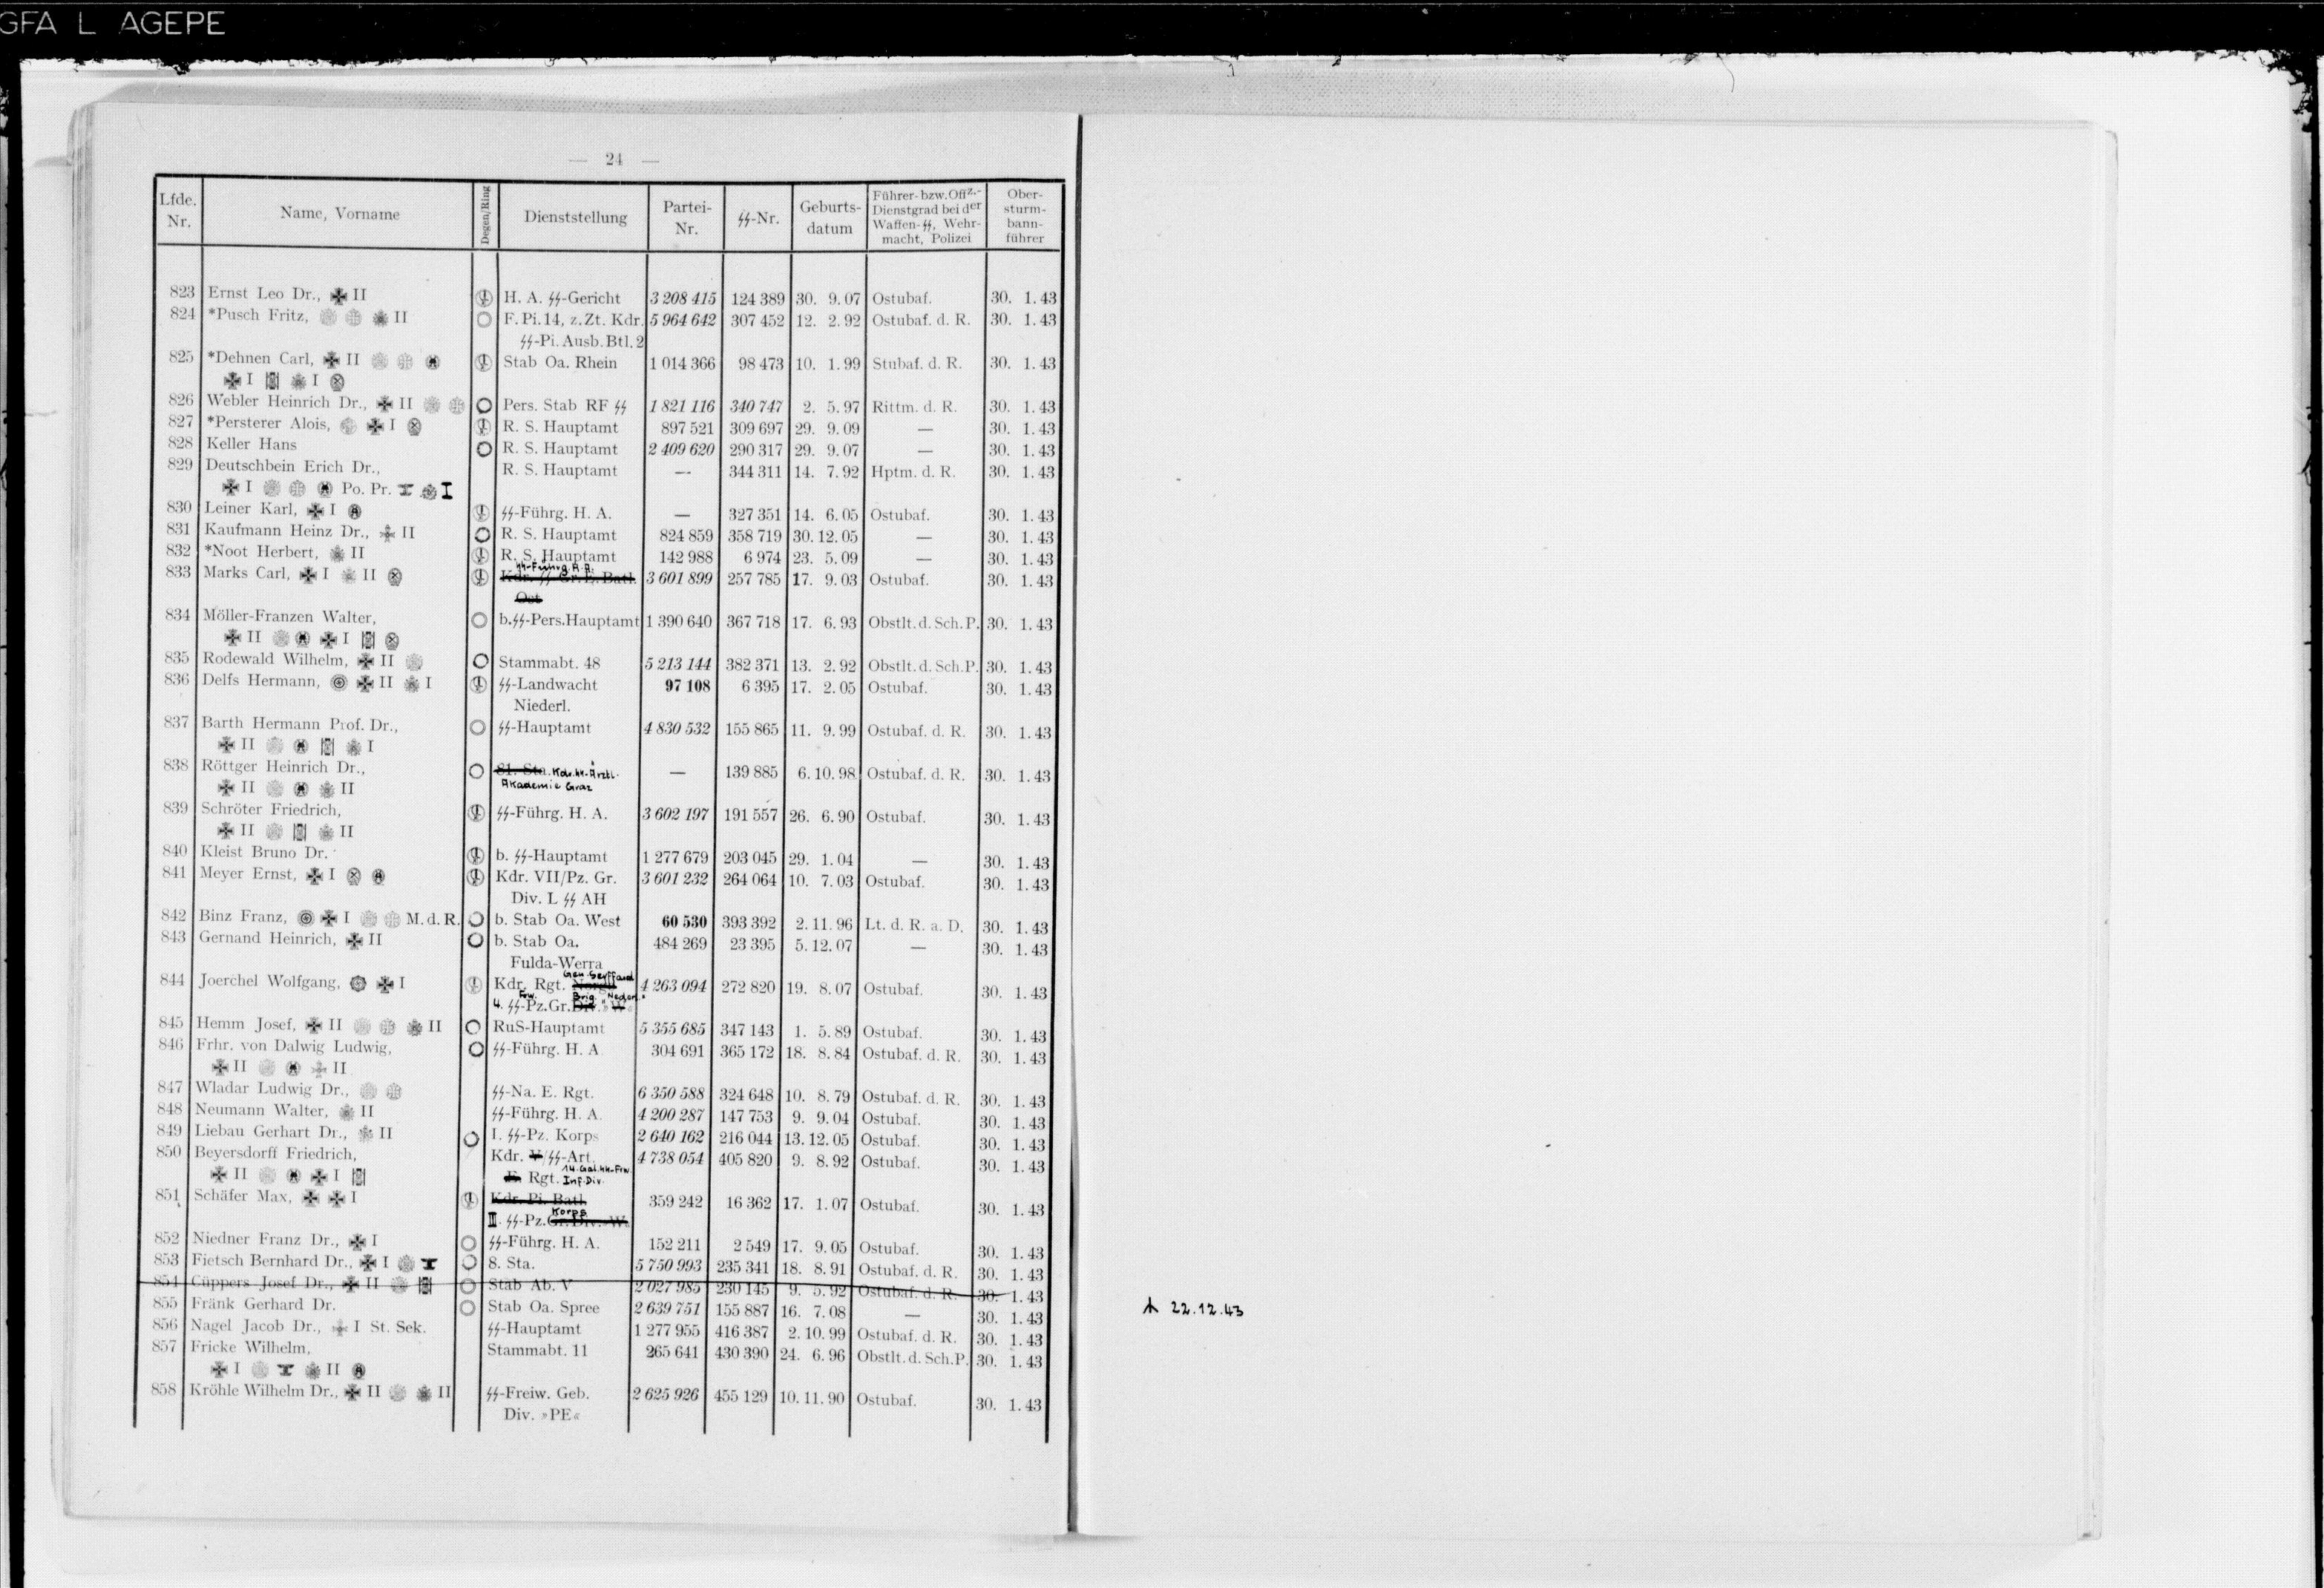 GFA L AGEPE
— 24 —
Lfde. Nr. Name, Vorname Degen/Ring Dienststellung Partei-Nr. ᛋᛋ-Nr. Geburts-datum Führer- bzw. Offz.-Dienstgrad bei der Waffen-ᛋᛋ, Wehr-macht, Polizei Ober-sturm-bann-führer
823 Ernst Leo Dr., II H. A. ᛋᛋ-Gericht 3 208 415 124 389 30. 9. 07 Ostubaf. 30. 1. 43
824 *Pusch Fritz, II F. Pi. 14, z. Zt. Kdr. 5 964 642 307 452 12. 2. 92 Ostubaf. d. R. 30. 1. 43
ᛋᛋ-Pi. Ausb. Btl. 2
825 *Dehnen Carl, II Stab Oa. Rhein 1 014 366 98 473 10. 1. 99 Stubaf. d. R. 30. 1. 43
I I
826 Webler Heinrich Dr., II Pers. Stab RF ᛋᛋ 1 821 116 340 747 2. 5. 97 Rittm. d. R. 30. 1. 43
827 *Persterer Alois, I R. S. Hauptamt 897 521 309 697 29. 9. 09 — 30. 1. 43
828 Keller Hans R. S. Hauptamt 2 409 620 290 317 29. 9. 07 — 30. 1. 43
829 Deutschbein Erich Dr., R. S. Hauptamt — 344 311 14. 7. 92 Hptm. d. R. 30. 1. 43
I Po. Pr. I
830 Leiner Karl, I ᛋᛋ-Führg. H. A. — 327 351 14. 6. 05 Ostubaf. 30. 1. 43
831 Kaufmann Heinz Dr., II R. S. Hauptamt 824 859 358 719 30. 12. 05 — 30. 1. 43
832 *Noot Herbert, II R. S. Hauptamt 142 988 6 974 23. 5. 09 — 30. 1. 43
ᛋᛋ-Führg. H. A.
833 Marks Carl, I II Kdr. ᛋᛋ Gr. E. Batl. 3 601 899 257 785 17. 9. 03 Ostubaf. 30. 1. 43
Ost
834 Möller-Franzen Walter, b. ᛋᛋ-Pers. Hauptamt 1 390 640 367 718 17. 6. 93 Obstlt. d. Sch. P. 30. 1. 43
II I
835 Rodewald Wilhelm, II Stammabt. 48 5 213 144 382 371 13. 2. 92 Obstlt. d. Sch. P. 30. 1. 43
836 Delfs Hermann, II I ᛋᛋ-Landwacht 97 108 6 395 17. 2. 05 Ostubaf. 30. 1. 43
Niederl.
837 Barth Hermann Prof. Dr., ᛋᛋ-Hauptamt 4 830 532 155 865 11. 9. 99 Ostubaf. d. R. 30. 1. 43
II I
838 Röttger Heinrich Dr., 81. Sta. Kdr. ᛋᛋ-Ärztl. — 139 885 6. 10. 98 Ostubaf. d. R. 30. 1. 43
II II Akademie Graz
839 Schröter Friedrich, ᛋᛋ-Führg. H. A. 3 602 197 191 557 26. 6. 90 Ostubaf. 30. 1. 43
II II
840 Kleist Bruno Dr. b. ᛋᛋ-Hauptamt 1 277 679 203 045 29. 1. 04 — 30. 1. 43
841 Meyer Ernst, I Kdr. VII/Pz. Gr. 3 601 232 264 064 10. 7. 03 Ostubaf. 30. 1. 43
Div. L ᛋᛋ AH
842 Binz Franz, I M. d. R. b. Stab Oa. West 60 530 393 392 2. 11. 96 Lt. d. R. a. D. 30. 1. 43
843 Gernand Heinrich, II b. Stab Oa. 484 269 23 395 5. 12. 07 — 30. 1. 43
Fulda-Werra
Gen. Seyffard
844 Joerchel Wolfgang, I Kdr. Rgt. 4 263 094 272 820 19. 8. 07 Ostubaf. 30. 1. 43
Frw. Brig. "Nederl."
4. ᛋᛋ-Pz. Gr. Div. »W«
845 Hemm Josef, II II RuS-Hauptamt 5 355 685 347 143 1. 5. 89 Ostubaf. 30. 1. 43
846 Frhr. von Dalwig Ludwig, ᛋᛋ-Führg. H. A. 304 691 365 172 18. 8. 84 Ostubaf. d. R. 30. 1. 43
II II
847 Wladar Ludwig Dr., ᛋᛋ-Na. E. Rgt. 6 350 588 324 648 10. 8. 79 Ostubaf. d. R. 30. 1. 43
848 Neumann Walter, II ᛋᛋ-Führg. H. A. 4 200 287 147 753 9. 9. 04 Ostubaf. 30. 1. 43
849 Liebau Gerhart Dr., II I. ᛋᛋ-Pz. Korps 2 640 162 216 044 13. 12. 05 Ostubaf. 30. 1. 43
850 Beyersdorff Friedrich, Kdr. V/ᛋᛋ-Art. 4 738 054 405 820 9. 8. 92 Ostubaf. 30. 1. 43
II I E. Rgt. 14. Gal. ᛋᛋ-Frw. Inf. Div.
851 Schäfer Max, I Kdr. Pi. Batl. 359 242 16 362 17. 1. 07 Ostubaf. 30. 1. 43
Korps
III. ᛋᛋ-Pz. Gr. Div. »W«
852 Niedner Franz Dr., I ᛋᛋ-Führg. H. A. 152 211 2 549 17. 9. 05 Ostubaf. 30. 1. 43
853 Fietsch Bernhard Dr., I 8. Sta. 5 750 993 235 341 18. 8. 91 Ostubaf. d. R. 30. 1. 43
854 Cüppers Josef Dr., II Stab Ab. V 2 027 985 230 145 9. 5. 92 Ostubaf. d. R. 30. 1. 43
855 Fränk Gerhard Dr. Stab Oa. Spree 2 639 751 155 887 16. 7. 08 — 30. 1. 43
ᛣ 22.12.43
856 Nagel Jacob Dr., I St. Sek. ᛋᛋ-Hauptamt 1 277 955 416 387 2. 10. 99 Ostubaf. d. R. 30. 1. 43
857 Fricke Wilhelm, Stammabt. 11 265 641 430 390 24. 6. 96 Obstlt. d. Sch. P. 30. 1. 43
I II
858 Kröhle Wilhelm Dr., II II ᛋᛋ-Freiw. Geb. 2 625 926 455 129 10. 11. 90 Ostubaf. 30. 1. 43
Div. »PE«